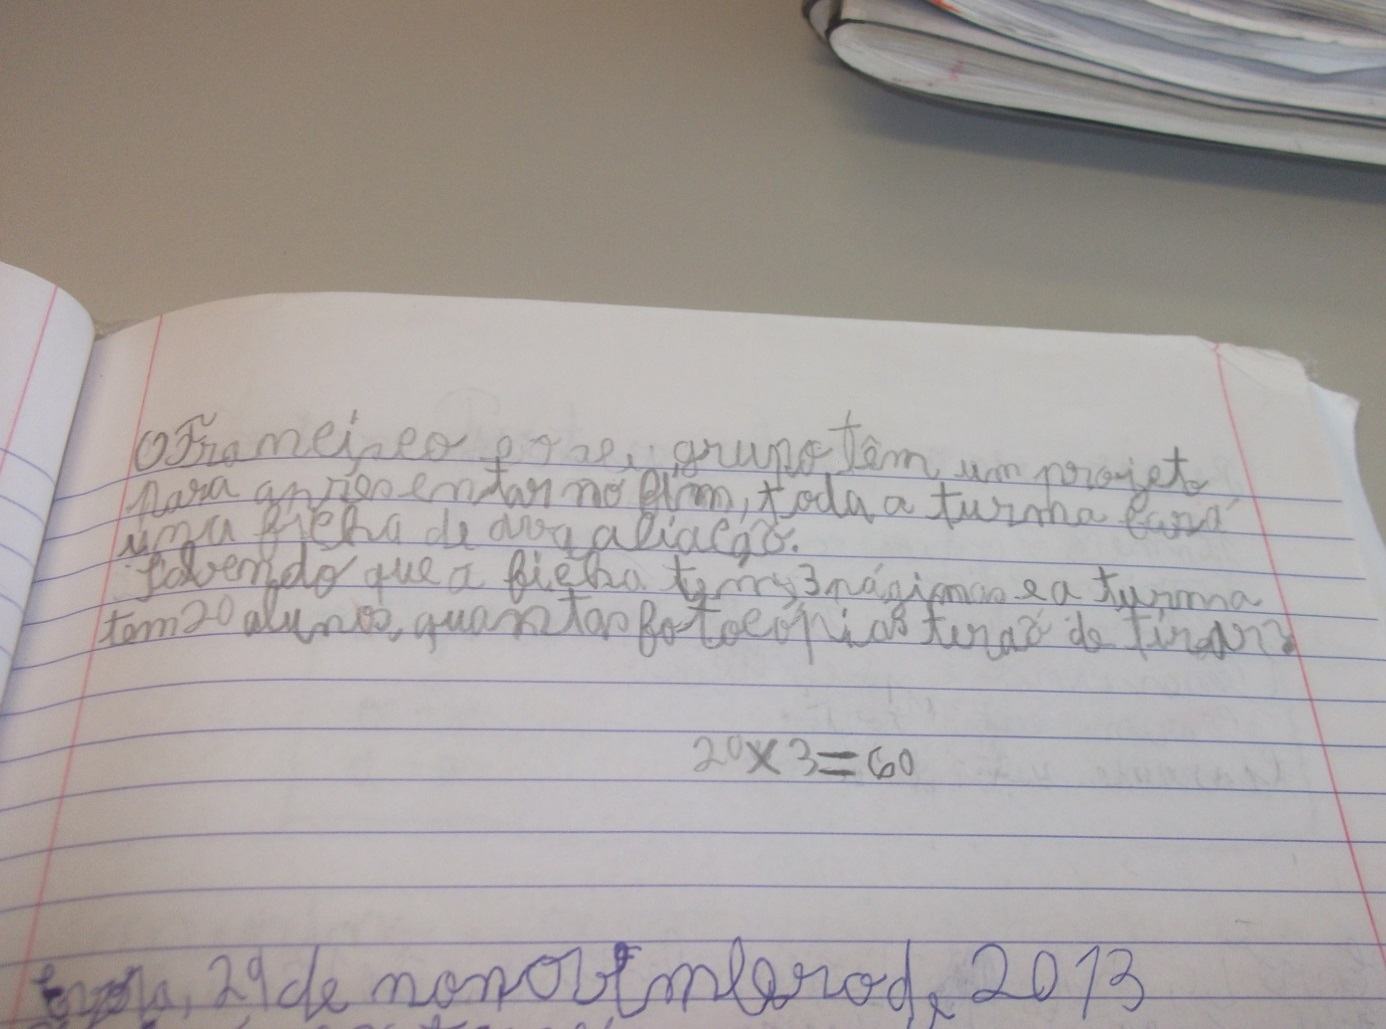 O Francisco e o seu grupo têm um projeto
para apresentar no fim, toda a turma fará
uma ficha de avaliação.
Sabendo que a ficha tem 3 páginas e a turma
tem 20 alunos, quantas fotocópias terão de tirar?
20 x 3 = 60
29 de nonovembrod, 2013